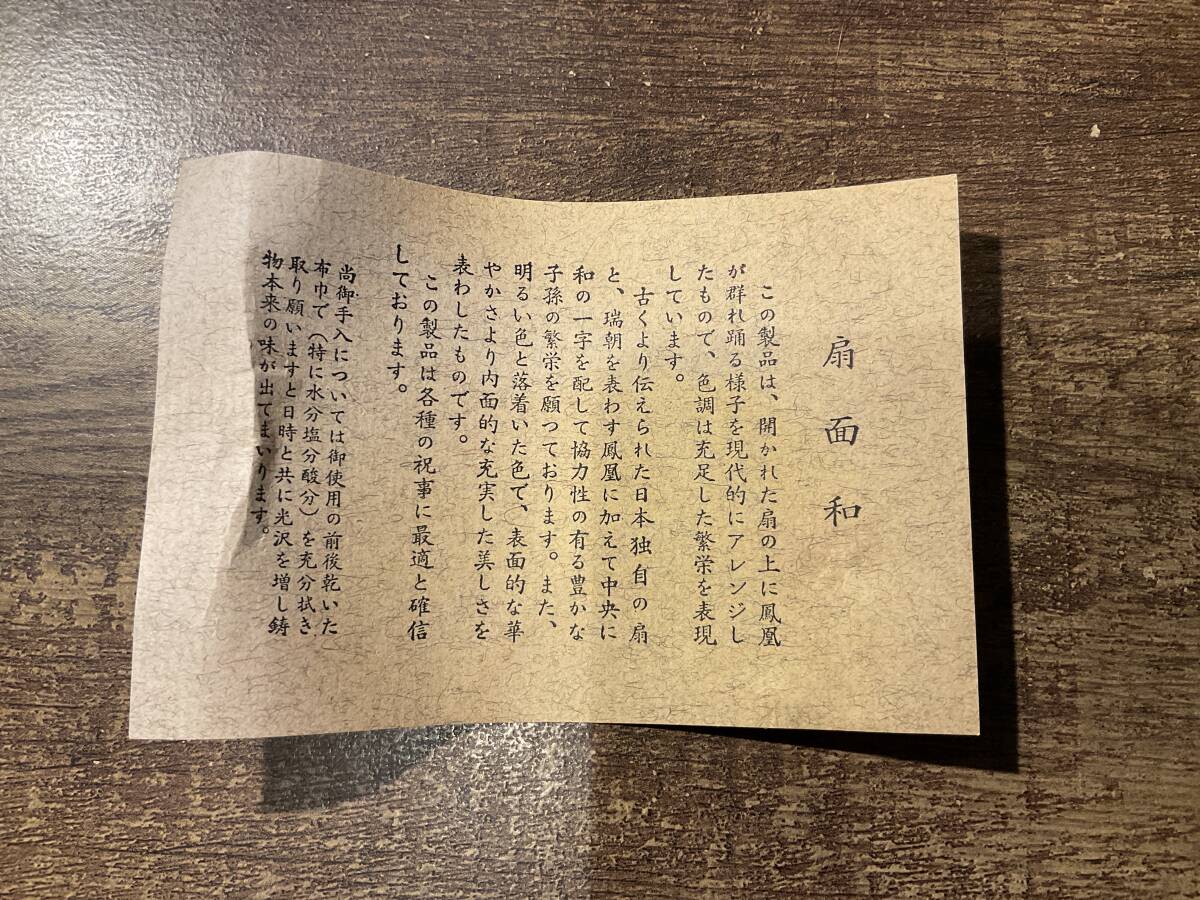 扇面和
この製品は、開かれた扇の上に鳳凰
が群れ踊る様子を現代的にアレンジし
たもので、色調は充足した繁栄を表現
しています。
古くより伝えられた日本独自の扇
と、瑞朝を表わす鳳凰に加えて中央に
和の一字を配して協力性の有る豊かな
子孫の繁栄を願つております。また、
明るい色と落着いた色で、表面的な華
やかさより内面的な充実した美しさを
表わしたものです。
この製品は各種の祝事に最適と確信
しております。
尚御手入については御使用の前後乾いた
布巾で（特に水分塩分酸分）を充分拭き
取り願いますと日時と共に光沢を増し鋳
物本来の味が出てまいります。